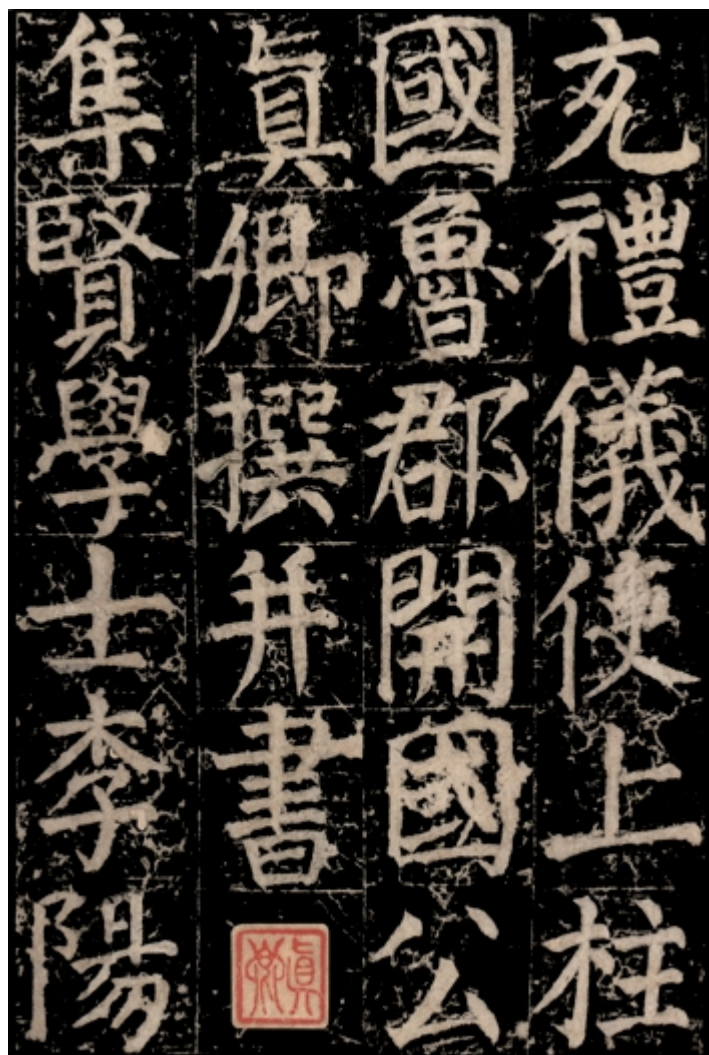 充禮儀使上柱
國魯郡開國公
真卿撰并書
集賢學士李陽